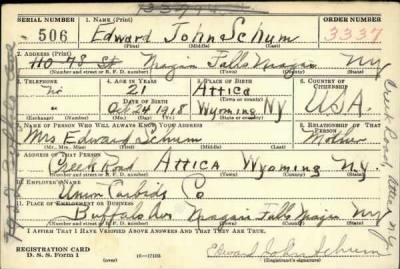 SERIAL NUMBER 1. NAME (Print) ORDER NUMBER
506 Edward John Schum 3337
(First) (Middle) (Last)
2. ADDRESS (Print)
110 78 St Niagara Falls Niagara NY
(Number and street or R. F. D. number) (Town) (County) (State)
3. TELEPHONE 4. AGE IN YEARS 5. PLACE OF BIRTH 6. COUNTRY OF CITIZENSHIP
No 21 Attica
DATE OF BIRTH (Town or county)
Oct 24 1918 Wyoming NY U.S.A.
(Exchange) (Number) (Mo.) (Day) (Yr.) (State or country)
7. NAME OF PERSON WHO WILL ALWAYS KNOW YOUR ADDRESS 8. RELATIONSHIP OF THAT PERSON
Mrs Edward Schum Mother
(Mr., Mrs., Miss) (First) (Middle) (Last)
9. ADDRESS OF THAT PERSON
Creek Road Attica Wyoming N.Y.
(Number and street or R. F. D. number) (Town) (County) (State)
10. EMPLOYER'S NAME
Union Carbide Co
11. PLACE OF EMPLOYMENT OR BUSINESS
Buffalo Ave Niagara Falls Niagara NY
(Number and street or R. F. D. number) (Town) (County) (State)
I AFFIRM THAT I HAVE VERIFIED ABOVE ANSWERS AND THAT THEY ARE TRUE.
REGISTRATION CARD
D. S. S. Form 1 Edward John Schum
(Registrant's signature)
Creek Road, Attica N.Y.